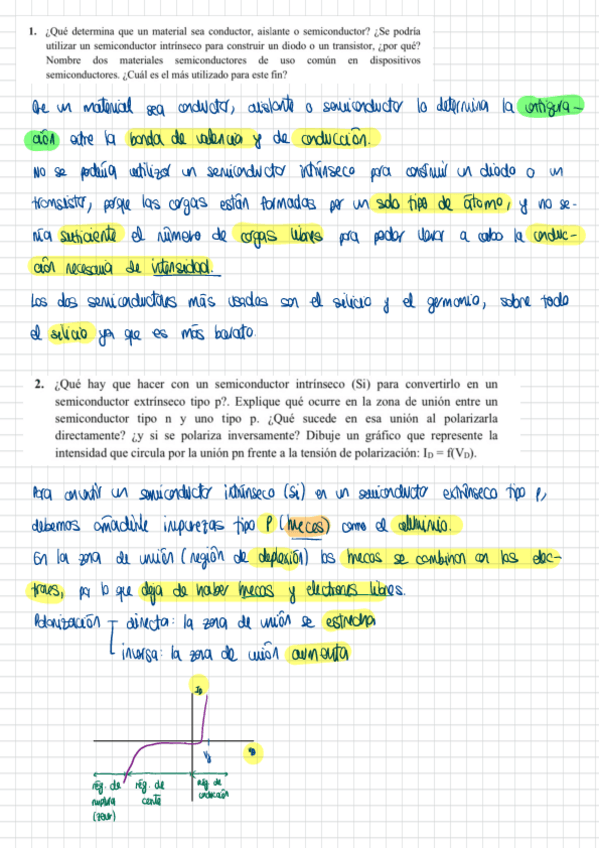 1. ¿Qué determina que un material sea conductor, aislante o semiconductor? ¿Se podría
utilizar un semiconductor intrínseco para construir un diodo o un transistor, ¿por qué?
Nombre dos materiales semiconductores de uso común en dispositivos
semiconductores. ¿Cuál es el más utilizado para este fin?
Que un material sea conductor, aislante o semiconductor lo determina la configura-
ción entre la banda de valencia y de conducción.
No se podría utilizar un semiconductor intrínseco para construir un diodo o un
transistor, porque las cargas están formadas por un solo tipo de átomo, y no se-
ría suficiente el número de cargas libres para poder llevar a cabo la conduc-
ción necesaria de intensidad.
Los dos semiconductores más usados son el silicio y el germanio, sobre todo
el silicio ya que es más barato.
2. ¿Qué hay que hacer con un semiconductor intrínseco (Si) para convertirlo en un
semiconductor extrínseco tipo p?. Explique qué ocurre en la zona de unión entre un
semiconductor tipo n y uno tipo p. ¿Qué sucede en esa unión al polarizarla
directamente? ¿y si se polariza inversamente? Dibuje un gráfico que represente la
intensidad que circula por la unión pn frente a la tensión de polarización: I_D = f(V_D).
Para convertir un semiconductor intrínseco (Si) en un semiconducto extrínseco tipo p,
debemos añadirle impurezas tipo P (huecos) como el aluminio.
En la zona de unión (región de deplexión) los huecos se combinan con los elec-
trones, por lo que deja de haber huecos y electrones libres.
Polarización directa: la zona de unión se estrecha
inversa: la zona de unión aumenta
I_D
reg. de ruptura (zener)
rég. de corte
rég. de conducción